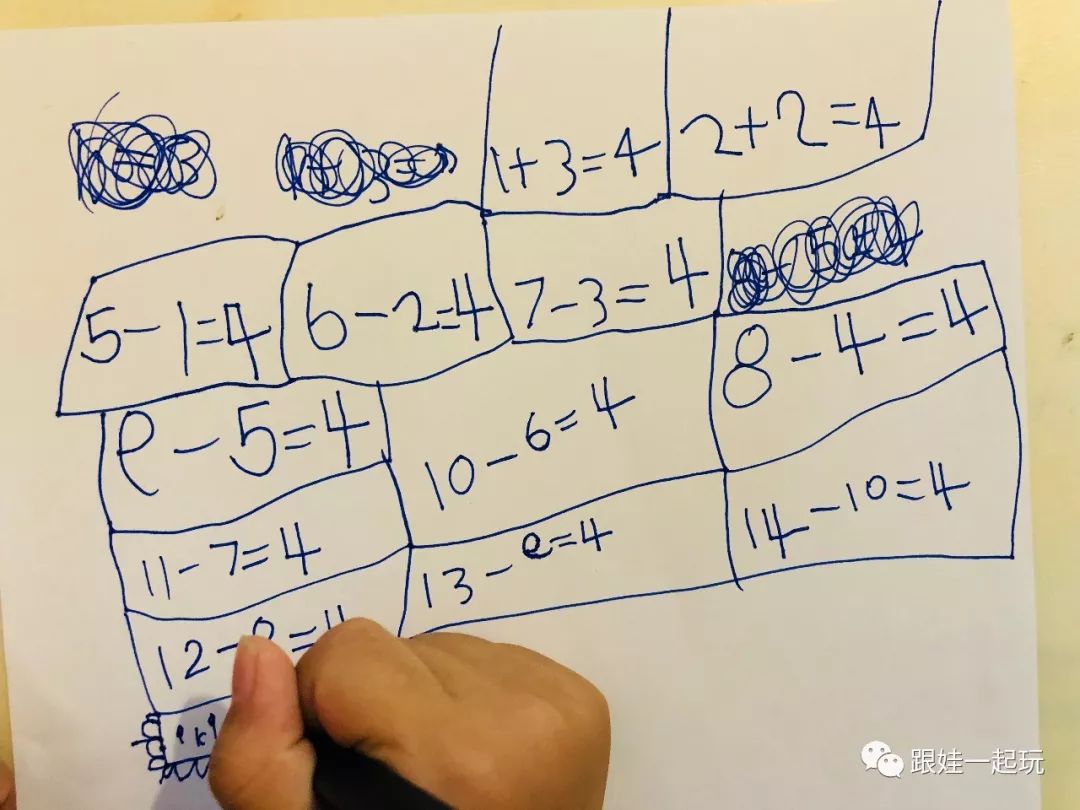 1+3=4
2+2=4
5-1=4
6-2=4
7-3=4
8-4=4
9-5=4
10-6=4
11-7=4
13-9=4
14-10=4
12-
跟娃一起玩